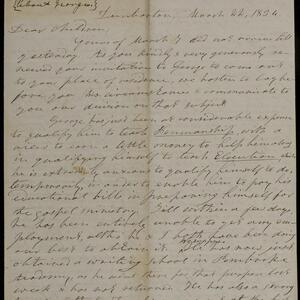 (About George)
Lumberton, March 22, 1854
Dear Children,
Yours of March 9 did not arrive till
yesterday. As you kindly & very generously re-
newed your invitation to George to come out
to your place of residence, we hasten to lay be-
fore you his circumstances & communicate to
you our decision on that subject.
George has just been at considerable expense
to qualify him to teach Penmanship, with a
view to earn a little money to help him along
in qualifying himself to teach Elocution, which
he is extremely anxious to qualify himself to do,
temporarily, in order to enable him to pay his
educational bills in preparing himself for
the gospel ministry. Till within a few days
he has been entirely unable to get any em-
ployment, altho' he & I both have been doing
our best to obtain it. He has now just
obtained a writing school in Pembroke
Academy, as he
week & has not returned. He has also a strong